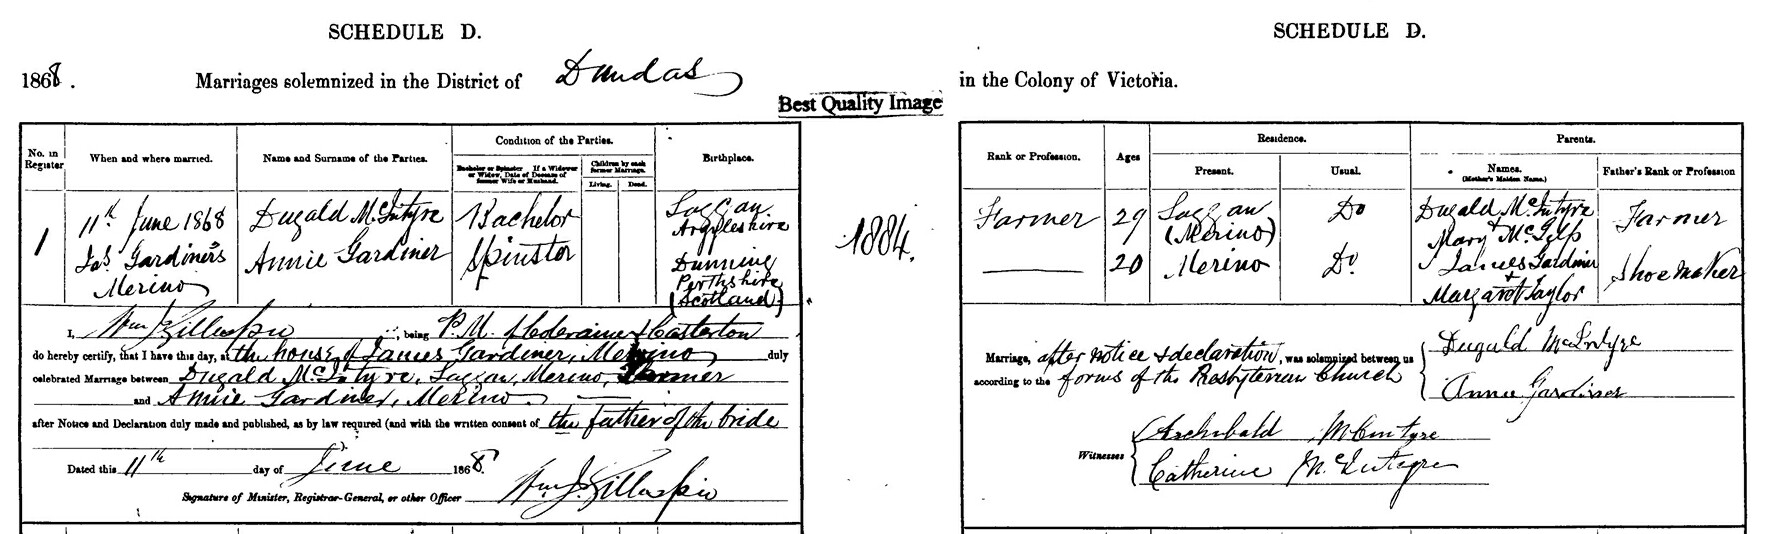 SCHEDULE D.
1868. Marriages solemnized in the District of Dundas
Best Quality Image
No. in Register
When and where married.
Name and Surname of the Parties.
Condition of the Parties.
Bachelor or Spinster. If a Widower or Widow, Date of Decease of former Wife or Husband.
Children by each former Marriage.
Living. Dead.
Birthplace.
1
11th June 1868
Jas Gardiners
Merino
Dugald McIntyre
Annie Gardiner
Bachelor
Spinster
Laggan
Argyleshire
Dunning
Perthshire
(Scotland)
I, Wm J Gillespie, being P.M. of Coleraine & Casterton
do hereby certify, that I have this day, at the house of James Gardiner, Merino duly
celebrated Marriage between Dugald McIntyre, Laggan, Merino, Farmer
and Annie Gardiner, Merino
after Notice and Declaration duly made and published, as by law required (and with the written consent of the father of the bride
Dated this 11th day of June 1868.
Wm J. Gillespie
Signature of Minister, Registrar-General, or other Officer
1884.
SCHEDULE D.
in the Colony of Victoria.
Rank or Profession.
Ages
Residence.
Present. Usual.
Parents.
Names.
(Mother's Maiden Name.)
Father's Rank or Profession
Farmer
29
Laggan
(Merino)
Do
Dugald McIntyre
Mary McGilp
Farmer
20
Merino
Do.
James Gardiner
+
Margaret Taylor
Shoemaker
Marriage, after notice & declaration, was solemnized between us
according to the forms of the Presbyterian Church
Dugald McIntyre
Annie Gardiner
Witnesses
Archibald McIntyre
Catherine McIntyre